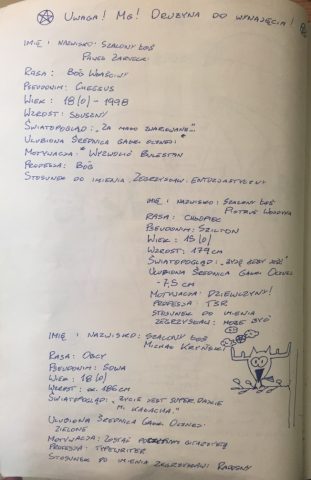 Uwaga! MG! Drużyna do wynajęcia!
Imię i nazwisko: Szalony Łoś
Paweł
Rasa: Bóg Właściwy
Pseudonim: Cheesus
Wiek: 18 (0) - 1998
Wzrost: Słuszny
Światopogląd: „Za mało
Ulubiona średnica gałki ocznej:
Motywacja: Wyzwolić
Profesja: Bóg
Stosunek do imienia Zegrzysław: Entuzjastyczny
Imię i nazwisko: Szalony Łoś
Piotrus
Rasa: Chłopiec
Pseudonim: Szilton
Wiek: 15 (0)
Wzrost: 179 cm
Światopogląd: „Żyję żeby jeść"
Ulubiona średnica gałki ocznej
- 7,5 cm
Motywacja: Dziewczyny!
Profesja:
Stosunek do imienia
Zegrzysław: Może być
Imię i nazwisko: Szalony Łoś
Michał
Rasa: Obcy
Pseudonim: Sowa
Wiek: 18 (0)
Wzrost: ok. 186 cm
Światopogląd: „Życie jest super. Dajcie
mi kałacha."
Ulubiona średnica gałki ocznej:
Zielone
Motywacja: Zostać gitarzystą
Profesja: Typewriter
Stosunek do imienia Zegrzysław: Radosny